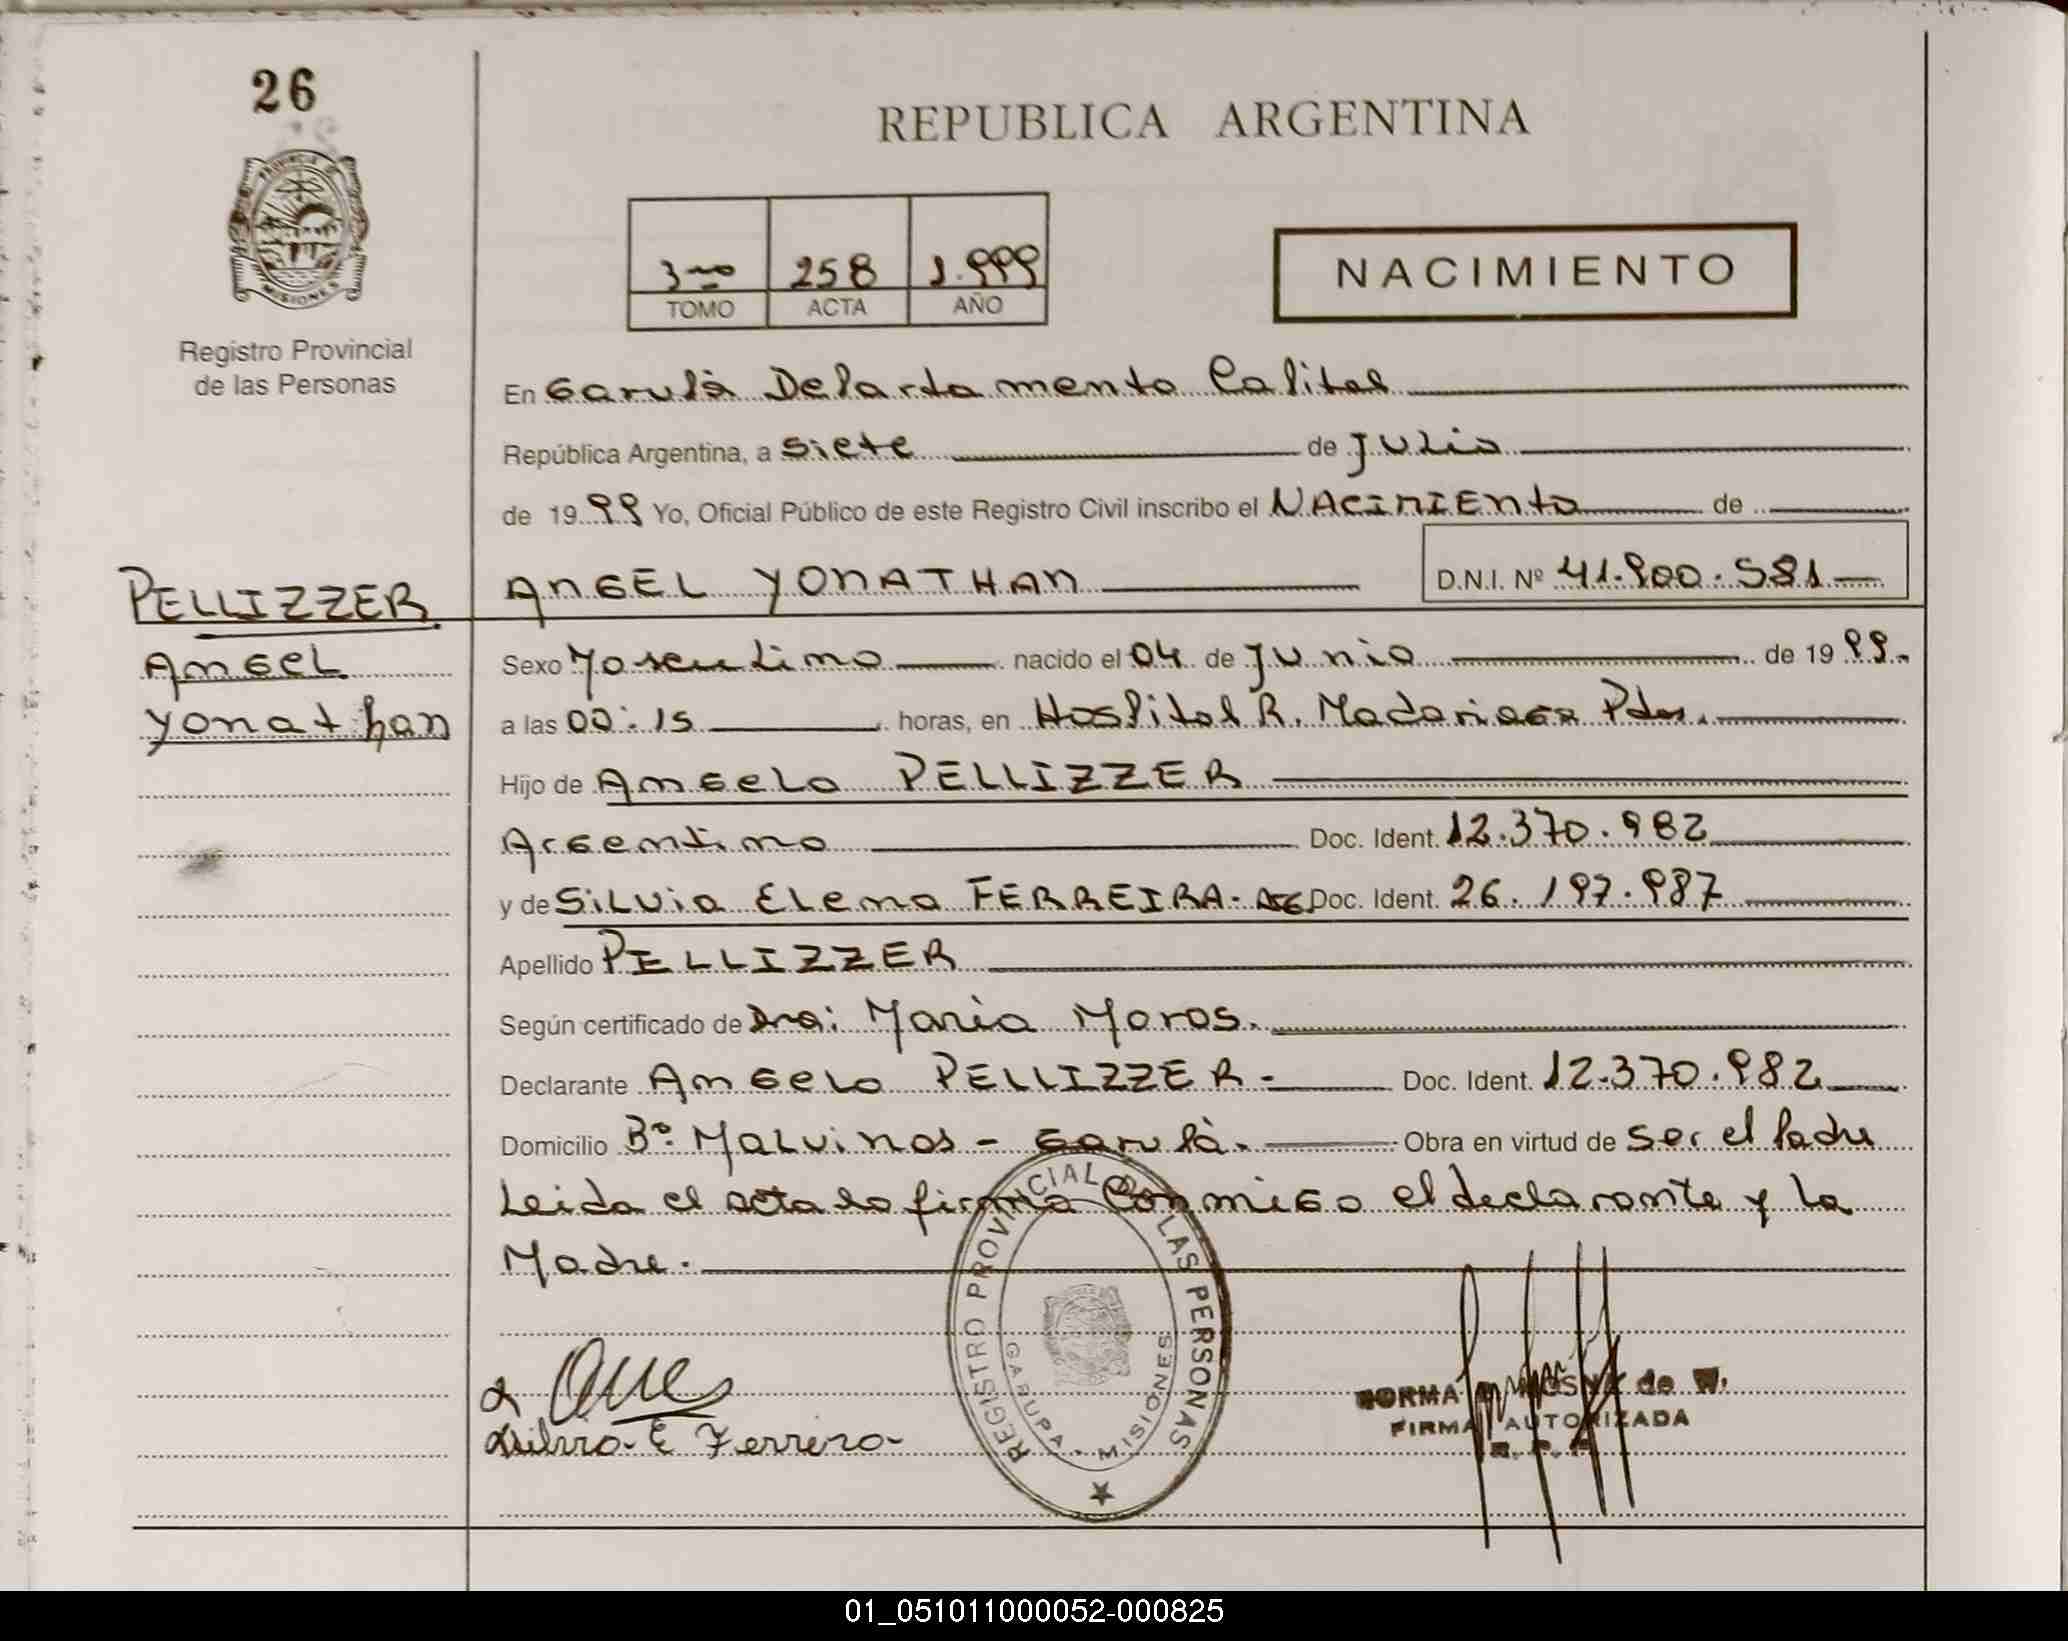 26
REPUBLICA ARGENTINA
PROVINCIA DE
MISIONES
3ro 258 1.999
TOMO ACTA AÑO
NACIMIENTO
Registro Provincial
de las Personas
En Garupá Departamento Capital
República Argentina, a siete de Julio
de 1999 Yo, Oficial Público de este Registro Civil inscribo el NACIMIENto de
PELLIZZER
Angel
Yonathan
ANGEL YONATHAN D.N.I. Nº 41.900.581
Sexo Masculino nacido el 04 de Junio de 1999.
a las 00:15 horas, en Hospital R. Madariaga Pdas.
Hijo de Angelo PELLIZZER
Argentino Doc. Ident. 12.370.982
y de Silvia Elena FERREIRA. Doc. Ident. 26.197.987
Apellido PELLIZZER
Según certificado de Dra: Maria Moros.
Declarante Angelo PELLIZZER- Doc. Ident. 12.370.982
Domicilio Bº. Malvinas - Garupá. Obra en virtud de ser el Padre
Leida el acta la firma Conmigo el declarante y la
Madre.
REGISTRO PROVINCIAL DE LAS PERSONAS
GARUPA - MISIONES
Silvia E Ferrera
NORMA de W.
FIRMA AUTORIZADA
01_051011000052-000825